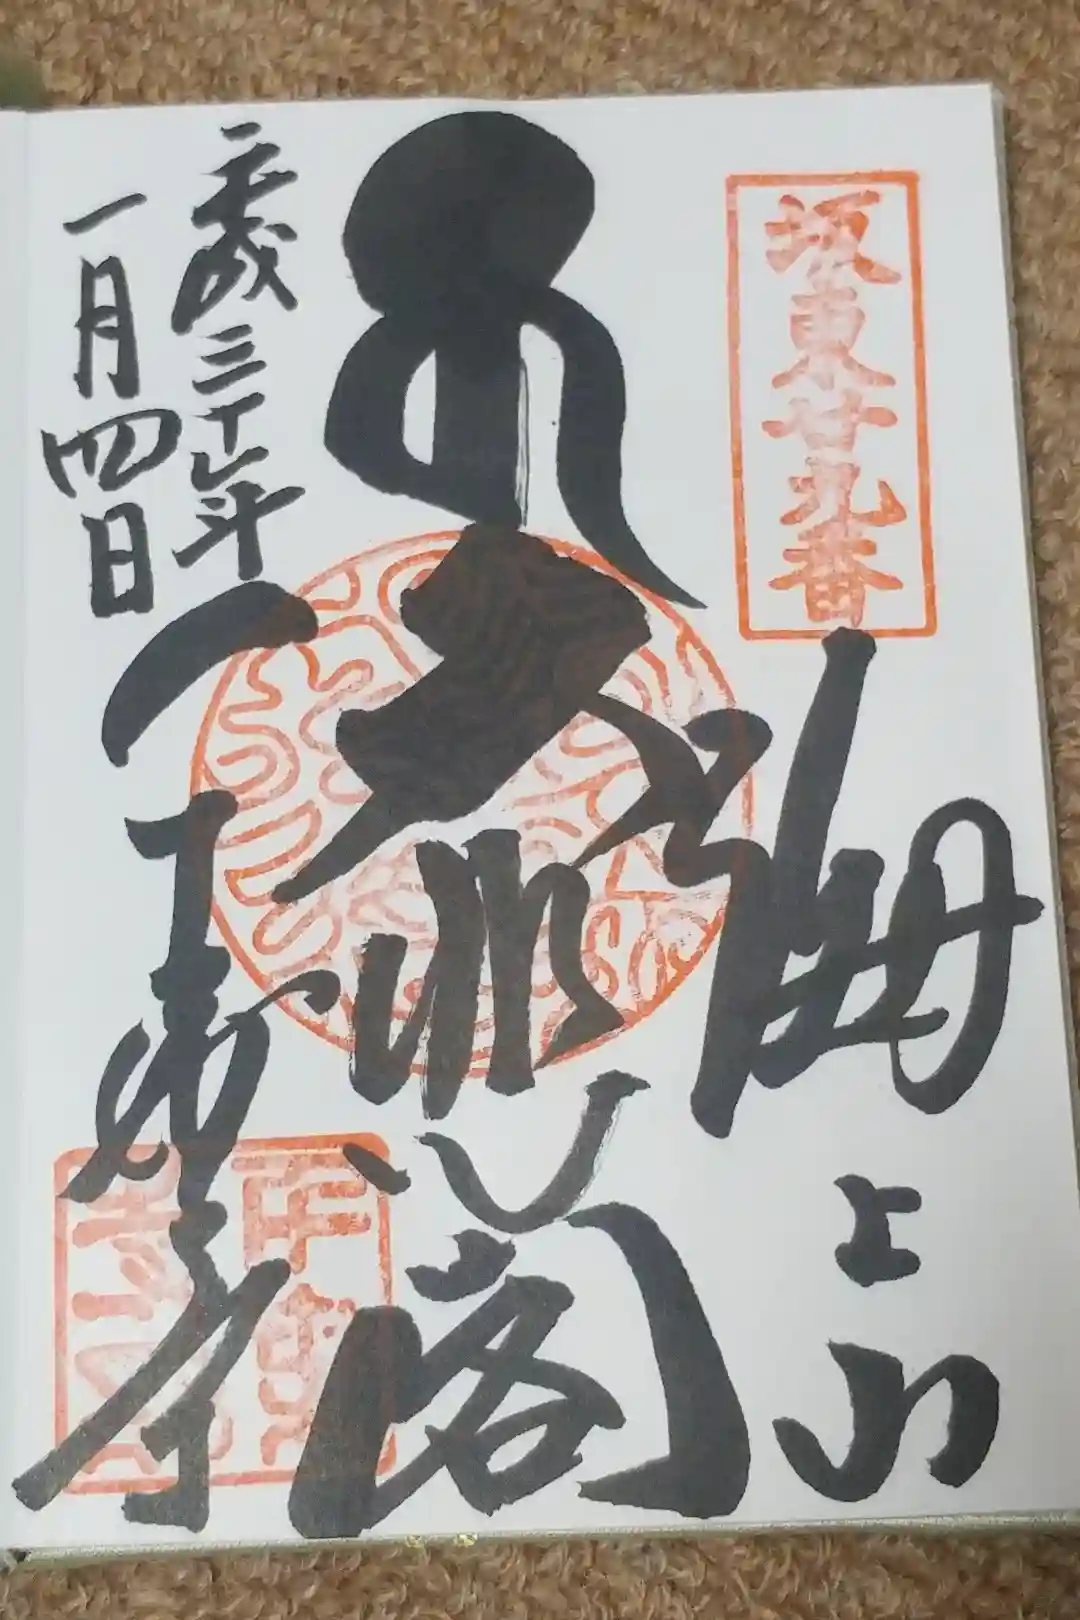 坂東廿九番
海上山
大悲閣
千葉寺
平成三十年
一月四日